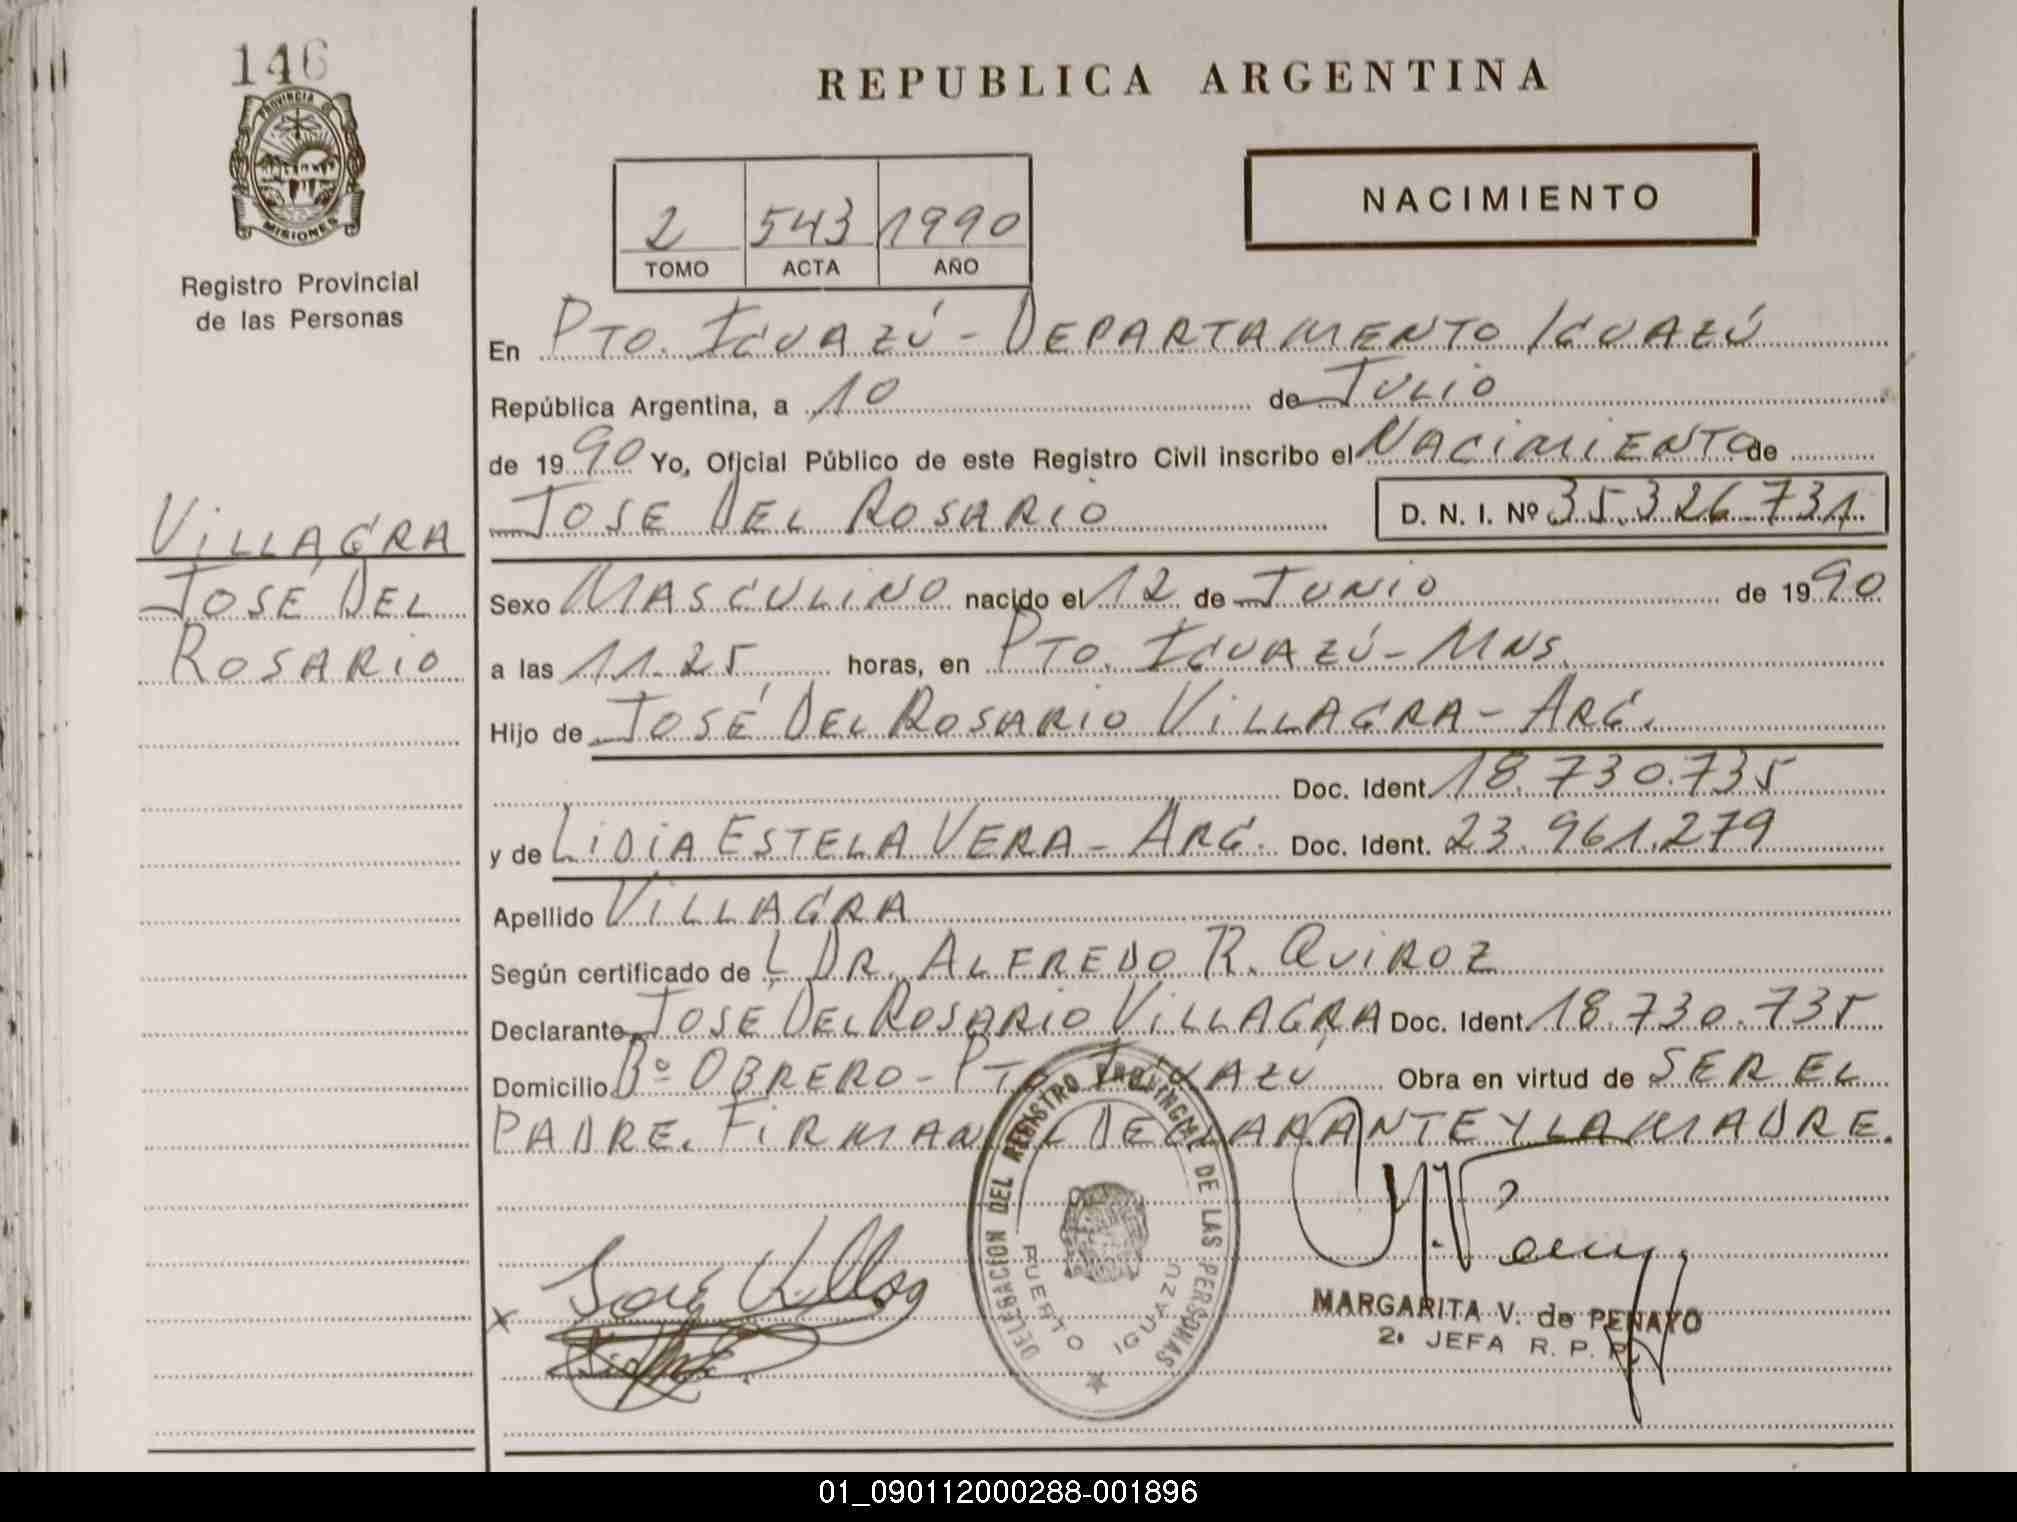 146
PROVINCIA DE
MISIONES
Registro Provincial
de las Personas
VILLAGRA
JOSÉ DEL
ROSARIO
REPUBLICA ARGENTINA
NACIMIENTO
2 543 1990
TOMO ACTA AÑO
En PTO. IGUAZÚ - DEPARTAMENTO IGUAZÚ
República Argentina, a 10 de JULIO
de 1990 Yo, Oficial Público de este Registro Civil inscribo el NACIMIENTO de
JOSE DEL ROSARIO D. N. I. Nº 35.326.731
Sexo MASCULINO nacido el 12 de JUNIO de 1990
a las 11.25 horas, en PTO. IGUAZÚ - MNS.
Hijo de JOSÉ DEL ROSARIO VILLAGRA - ARG.
Doc. Ident. 18.730.735
y de LIDIA ESTELA VERA - ARG. Doc. Ident. 23.961.279
Apellido VILLAGRA
Según certificado de L DR. ALFREDO R. QUIROZ
Declarante JOSÉ DEL ROSARIO VILLAGRA Doc. Ident. 18.730.735
Domicilio Bº OBRERO - PTO. IGUAZÚ Obra en virtud de SER EL
PADRE. FIRMAN EL DECLARANTE Y LA MADRE.
DELEGACION DEL REGISTRO PROVINCIAL DE LAS PERSONAS
PUERTO IGUAZU
X José Villag
MARGARITA V. de PENAYO
2ª JEFA R. P. P.
01_090112000288-001896